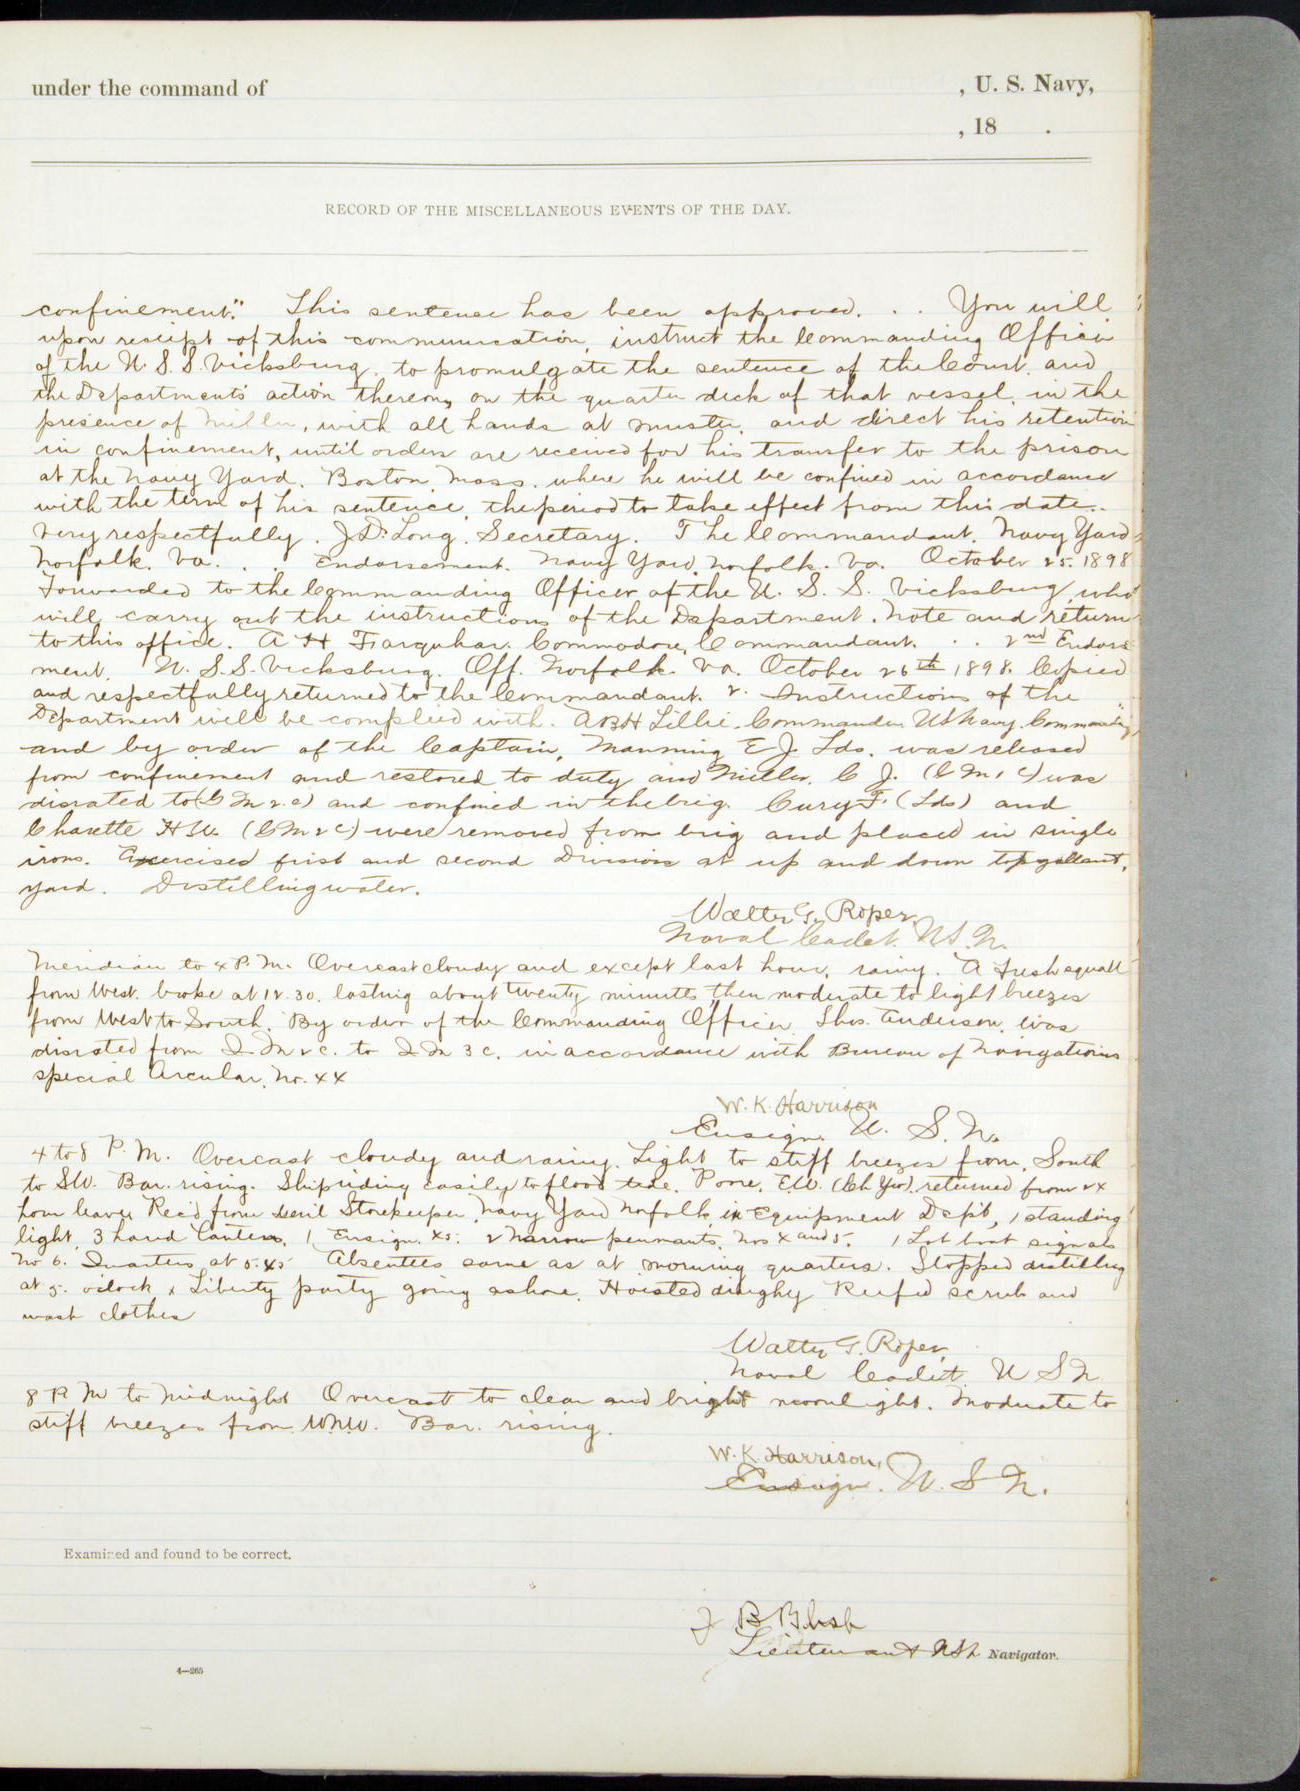 under the command of , U. S. Navy,
, 18 .
RECORD OF THE MISCELLANEOUS EVENTS OF THE DAY.
confinement." This sentence has been approved. . . You will
upon receipt of this communication, instruct the Commanding Officer
of the U.S.S. Vicksburg, to promulgate the sentence of the Court, and
the Department's action thereon, on the quarter deck of that vessel, in the
presence of Miller, with all hands at muster, and direct his retention
in confinement, until orders are received for his transfer to the prison
at the Navy Yard, Boston, Mass. where he will be confined in accordance
with the term of his sentence, the period to take effect from this date.
Very respectfully. J.D. Long. Secretary. The Commandant. Navy Yard
Norfolk. Va. . . Endorsement. Navy Yard, Norfolk. Va. October 25. 1898
Forwarded to the Commanding Officer of the U. S. S. Vicksburg, who
will carry out the instructions of the Department. Note and return
to this office. A H Farquhar. Commodore, Commandant. . . 2nd Endorse
ment. U.S.S. Vicksburg. Off. Norfolk. Va. October 26th 1898. Copied
and respectfully returned to the Commandant. 2. Instructions of the
Department will be complied with. ABH Lillie. Commander US Navy. Commanding"
and by order of the Captain, Manning E.J. Lds. was released
from confinement and restored to duty and Miller, C J. (C M 1 C) was
disrated to (C M 2 c) and confined in the brig. Cury F. (Lds) and
Charette H W. (C M 2 C) were removed from brig and placed in single
irons. Exercised first and second Division at up and down topgallant,
yard. Distilling water.
Walter G. Roper,
Naval Cadet. U.S.N.
Meridian to 4 P.M. Overcast cloudy and except last hour, rainy. A fresh squall
from West. broke at 12.30. lasting about twenty minutes, then moderate to light breezes
from West to South. By order of the Commanding Officer. Thos. Anderson. was
disrated from 2 c. to 3 c. in accordance with Bureau of Navigations
special Circular. No. 44
W. K. Harrison
Ensign. U. S. N.
4 to 8 P. M. Overcast cloudy and rainy. Light to stiff breezes from. South
to SW. Bar. rising. Ship riding easily to flood tide. E.W. (Ch Yeo). returned from 24
hour leave. Rec'd from Genl Storekeeper, Navy Yard Norfolk, in Equipment Dep't, 1 standing
light, 3 hand lanterns, 1 Ensign. 2 narrow pennants. Nos 4 and 5. 1 boat signals
No 6. Quarters at 5.45 Absentees same as at morning quarters. Stopped distilling
at 5. o'clock. Liberty party going ashore. Hoisted dinghy scrub and
wash clothes
Walter G. Roper,
Naval Cadet. U S N
8 P. M to Midnight Overcast to clear and bright moonlight. Moderate to
stiff breezes from WNW. Bar. rising.
W. K. Harrison,
Ensign. U. S N.
Examined and found to be correct.
J B Blish
Lieutenant USN Navigator.
4—265